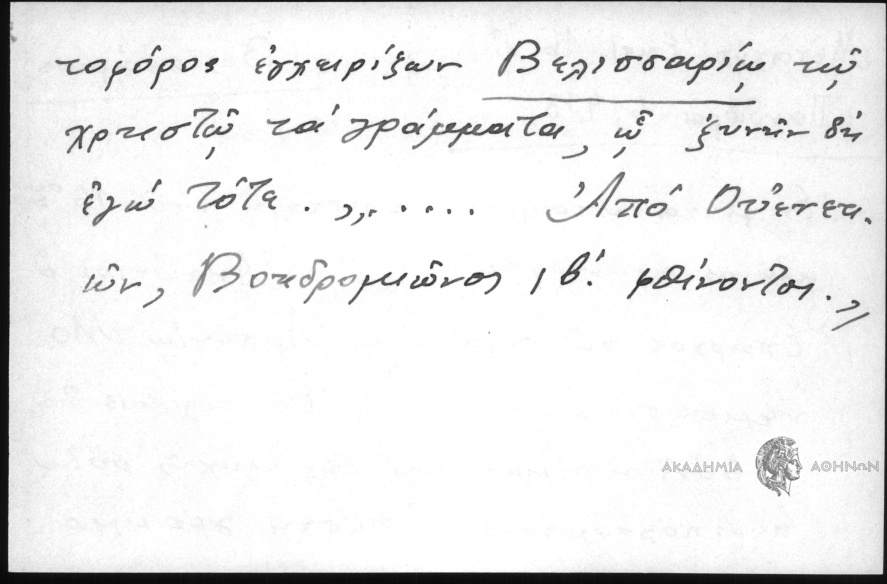 τοφόρος ἐγχειρίζων Βελισσαρίῳ τῷ
χρηστῷ τά γράμματα, ᾧ ξυνῆν δή
ἐγώ τότε . ,,..... Ἀπό Οὐενετι-
ῶν, Βοηδρομιῶνος ιβ΄. φθίνοντος.,,
ΑΚΑΔΗΜΙΑ ΑΘΗΝΩΝ